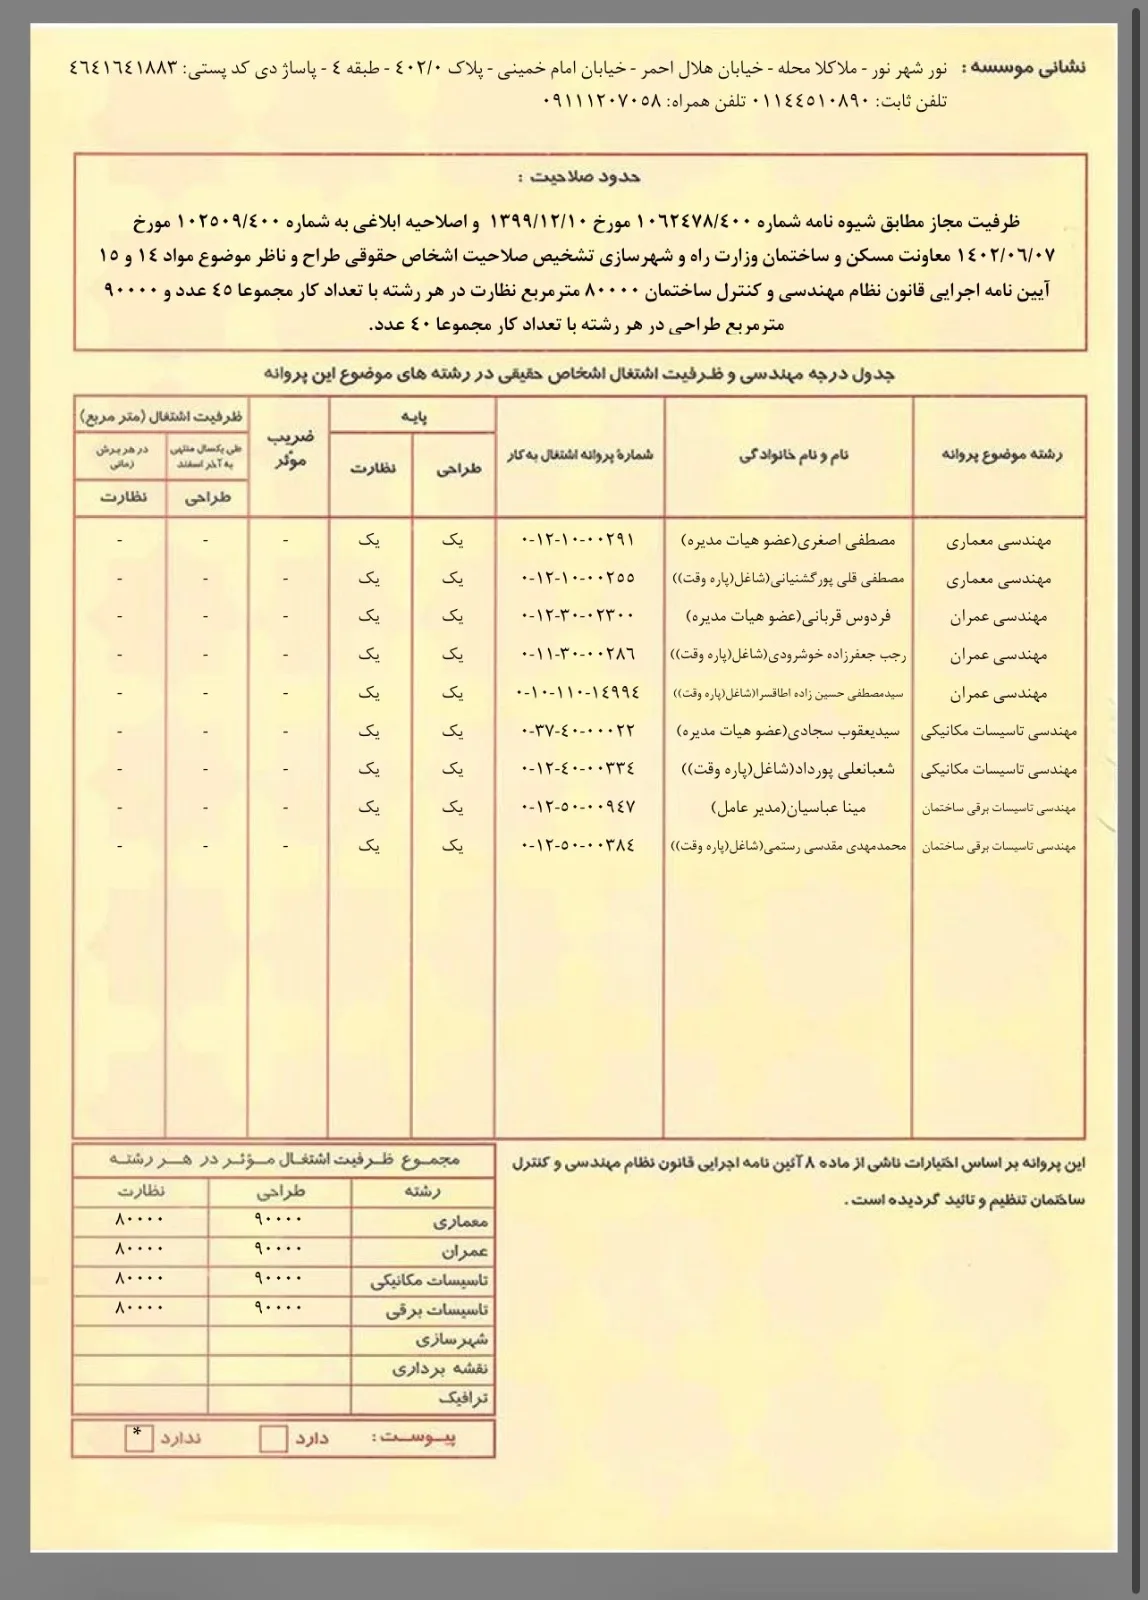 نشانی موسسه : نور شهر نور - ملاکلا محله - خیابان هلال احمر - خیابان امام خمینی - پلاک ۴۰۲/۰ - طبقه ۴ - پاساژ دی کد پستی: ۴۶۴۱۶۴۱۸۸۳
تلفن ثابت: ۰۱۱۴۴۵۱۰۸۹۰ تلفن همراه: ۰۹۱۱۱۲۰۷۰۵۸
حدود صلاحیت :
ظرفیت مجاز مطابق شیوه نامه شماره ۱۰۶۲۴۷۸/۴۰۰ مورخ ۱۳۹۹/۱۲/۱۰ و اصلاحیه ابلاغی به شماره ۱۰۲۵۰۹/۴۰۰ مورخ
۱۴۰۲/۰۶/۰۷ معاونت مسکن و ساختمان وزارت راه و شهرسازی تشخیص صلاحیت اشخاص حقوقی طراح و ناظر موضوع مواد ۱۴ و ۱۵
آیین نامه اجرایی قانون نظام مهندسی و کنترل ساختمان ۸۰۰۰۰ مترمربع نظارت در هر رشته با تعداد کار مجموعا ۴۵ عدد و ۹۰۰۰۰
مترمربع طراحی در هر رشته با تعداد کار مجموعا ۴۰ عدد.
جدول درجه مهندسی و ظرفیت اشتغال اشخاص حقیقی در رشته های موضوع این پروانه
رشته موضوع پروانه نام و نام خانوادگی شمارهٔ پروانه اشتغال به کار پایه ضریب موثر ظرفیت اشتغال (متر مربع)
طراحی نظارت طی یکسال منتهی به آخر اسفند در هر برش زمانی
طراحی نظارت
مهندسی معماری مصطفی اصغری(عضو هیات مدیره) ۰-۱۲-۱۰-۰۰۲۹۱ یک یک - - -
مهندسی معماری مصطفی قلی پورگشنیانی(شاغل(پاره وقت)) ۰-۱۲-۱۰-۰۰۲۵۵ یک یک - - -
مهندسی عمران فردوس قربانی(عضو هیات مدیره) ۰-۱۲-۳۰-۰۲۳۰۰ یک یک - - -
مهندسی عمران رجب جعفرزاده خوشرودی(شاغل(پاره وقت)) ۰-۱۱-۳۰-۰۰۲۸۶ یک یک - - -
مهندسی عمران سیدمصطفی حسین زاده اطاقسرا(شاغل(پاره وقت)) ۰-۱۰-۱۱۰-۱۴۹۹۴ یک یک - - -
مهندسی تاسیسات مکانیکی سیدیعقوب سجادی(عضو هیات مدیره) ۰-۳۷-۴۰-۰۰۰۲۲ یک یک - - -
مهندسی تاسیسات مکانیکی شعبانعلی پورداد(شاغل(پاره وقت)) ۰-۱۲-۴۰-۰۰۳۳۴ یک یک - - -
مهندسی تاسیسات برقی ساختمان مینا عباسیان(مدیر عامل) ۰-۱۲-۵۰-۰۰۹۴۷ یک یک - - -
مهندسی تاسیسات برقی ساختمان محمدمهدی مقدسی رستمی(شاغل(پاره وقت)) ۰-۱۲-۵۰-۰۰۳۸۴ یک یک - - -
این پروانه بر اساس اختیارات ناشی از ماده ۸ آئین نامه اجرایی قانون نظام مهندسی و کنترل
ساختمان تنظیم و تائید گردیده است .
مجموع ظرفیت اشتغال مؤثر در هر رشته
رشته طراحی نظارت
معماری ۹۰۰۰۰ ۸۰۰۰۰
عمران ۹۰۰۰۰ ۸۰۰۰۰
تاسیسات مکانیکی ۹۰۰۰۰ ۸۰۰۰۰
تاسیسات برقی ۹۰۰۰۰ ۸۰۰۰۰
شهرسازی
نقشه برداری
ترافیک
پیوست : دارد ندارد *